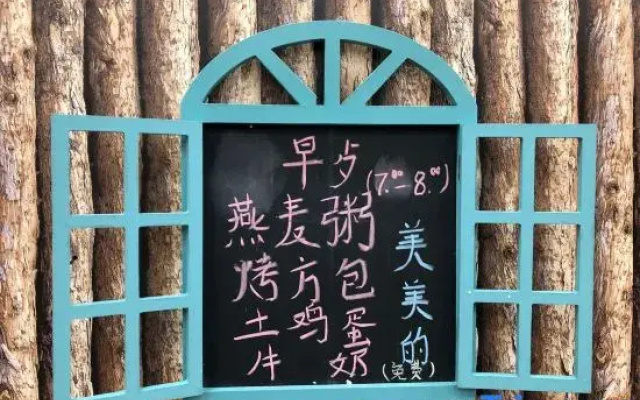 早歺(7.00-8.00)
燕麦粥
烤方包
土鸡蛋
牛奶
美美的
(免费)